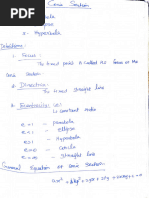 Conic Section
Parabola
Ellipse
3. Hyperbola
Definitions:-
1. Focus:-
The fixed point is called the focus of the
conic Section.
2. Directrix:-
The fixed straight line
3. Eccentricity:-
is constant ratio
e=1 - parabola
e<1 - ellipse
e>1 - Hyperbola
e=0 - circle
- straight line
General Equation of Conic Section:-